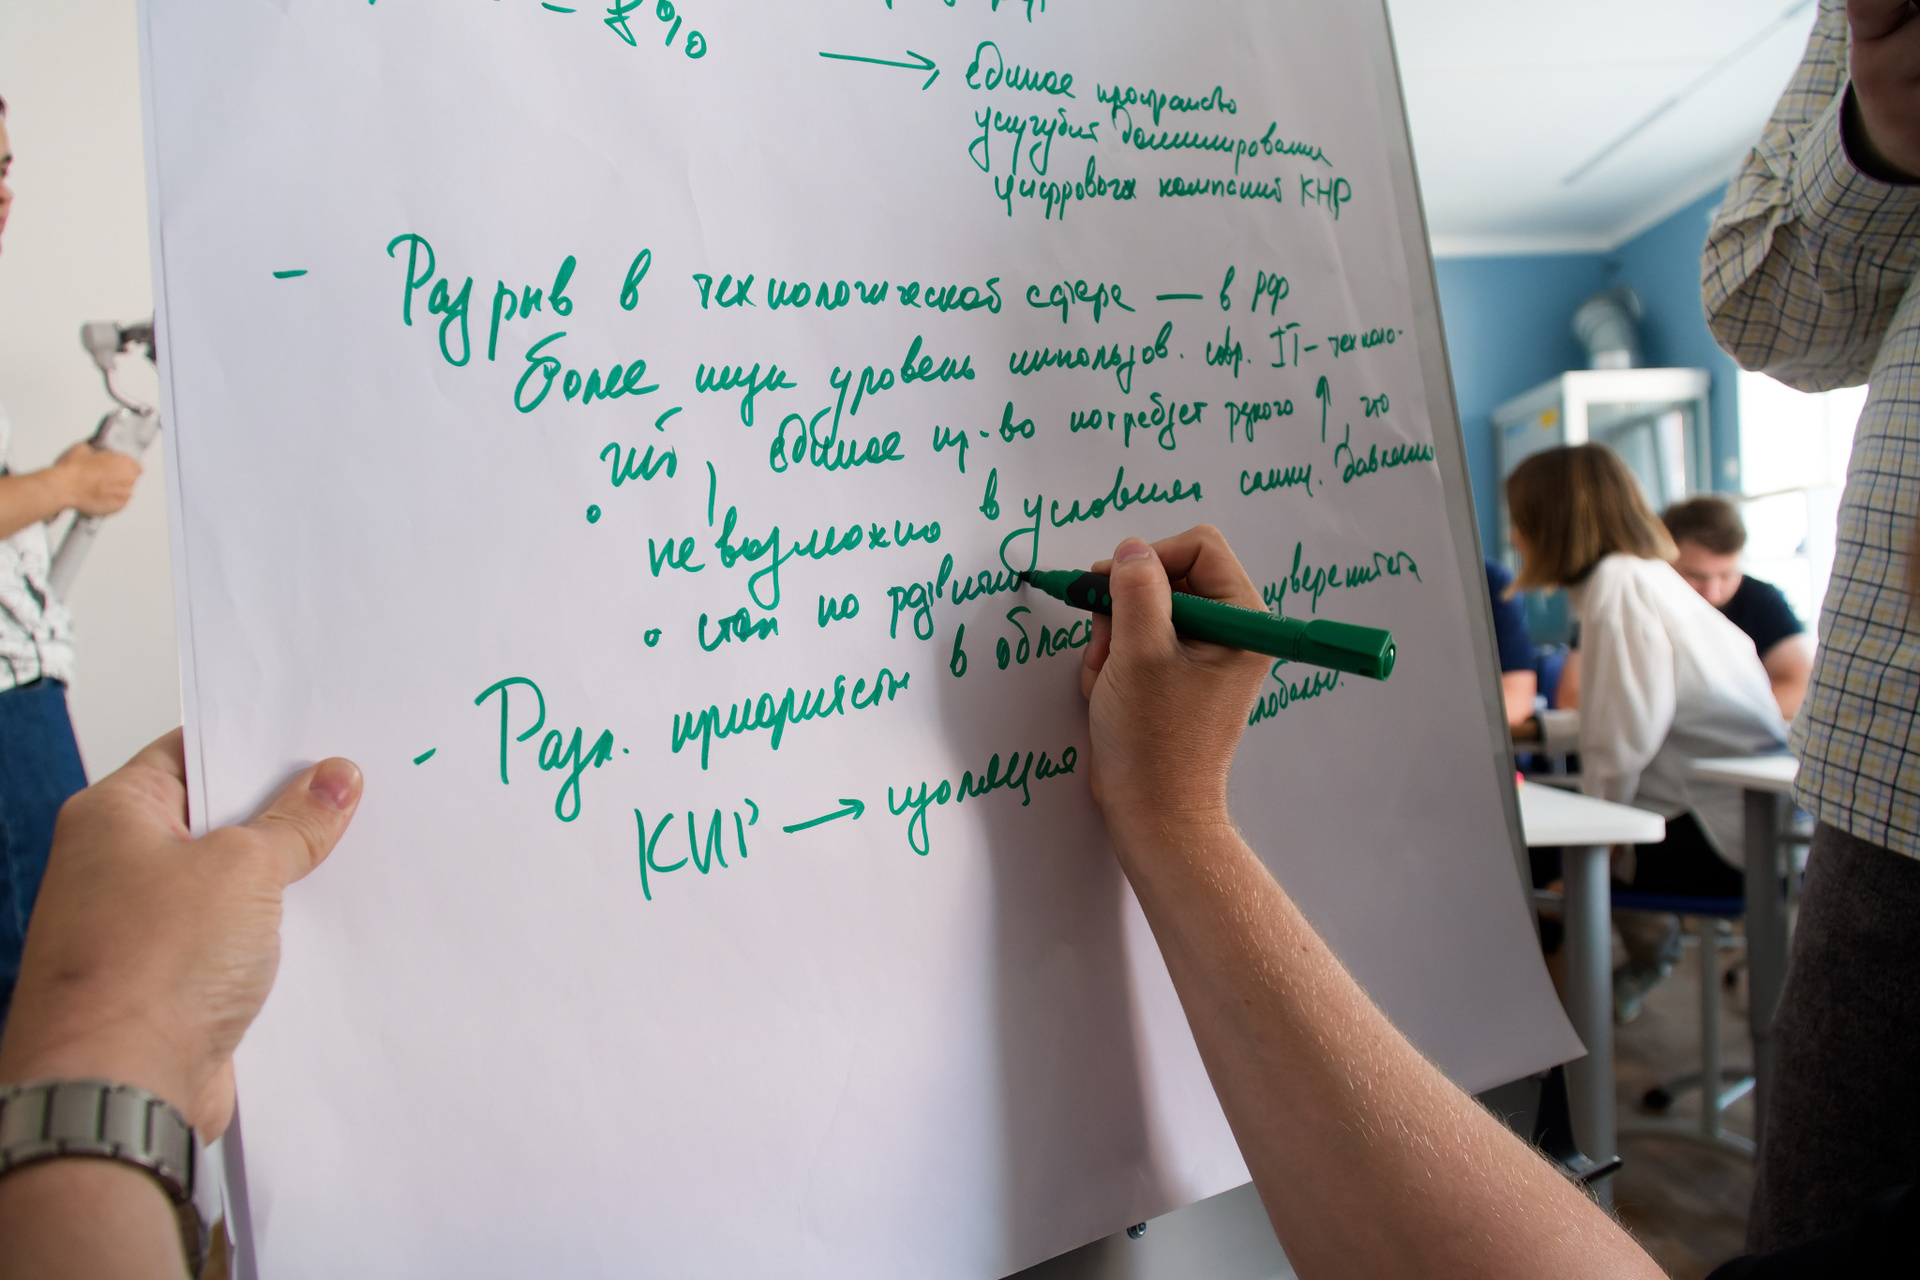 %
→ единое пространство
усугубит доминирование
цифровых компаний КНР
- Разрыв в технологической сфере — в РФ
более низк уровень использов. совр. IT-техноло-
гий, единое пр-во потребует резкого ↑, что
невозможно в условиях санкц. давления
стан по развитию суверенитета
- Разл. приоритеты в област глобальн.
КНР → изоляция